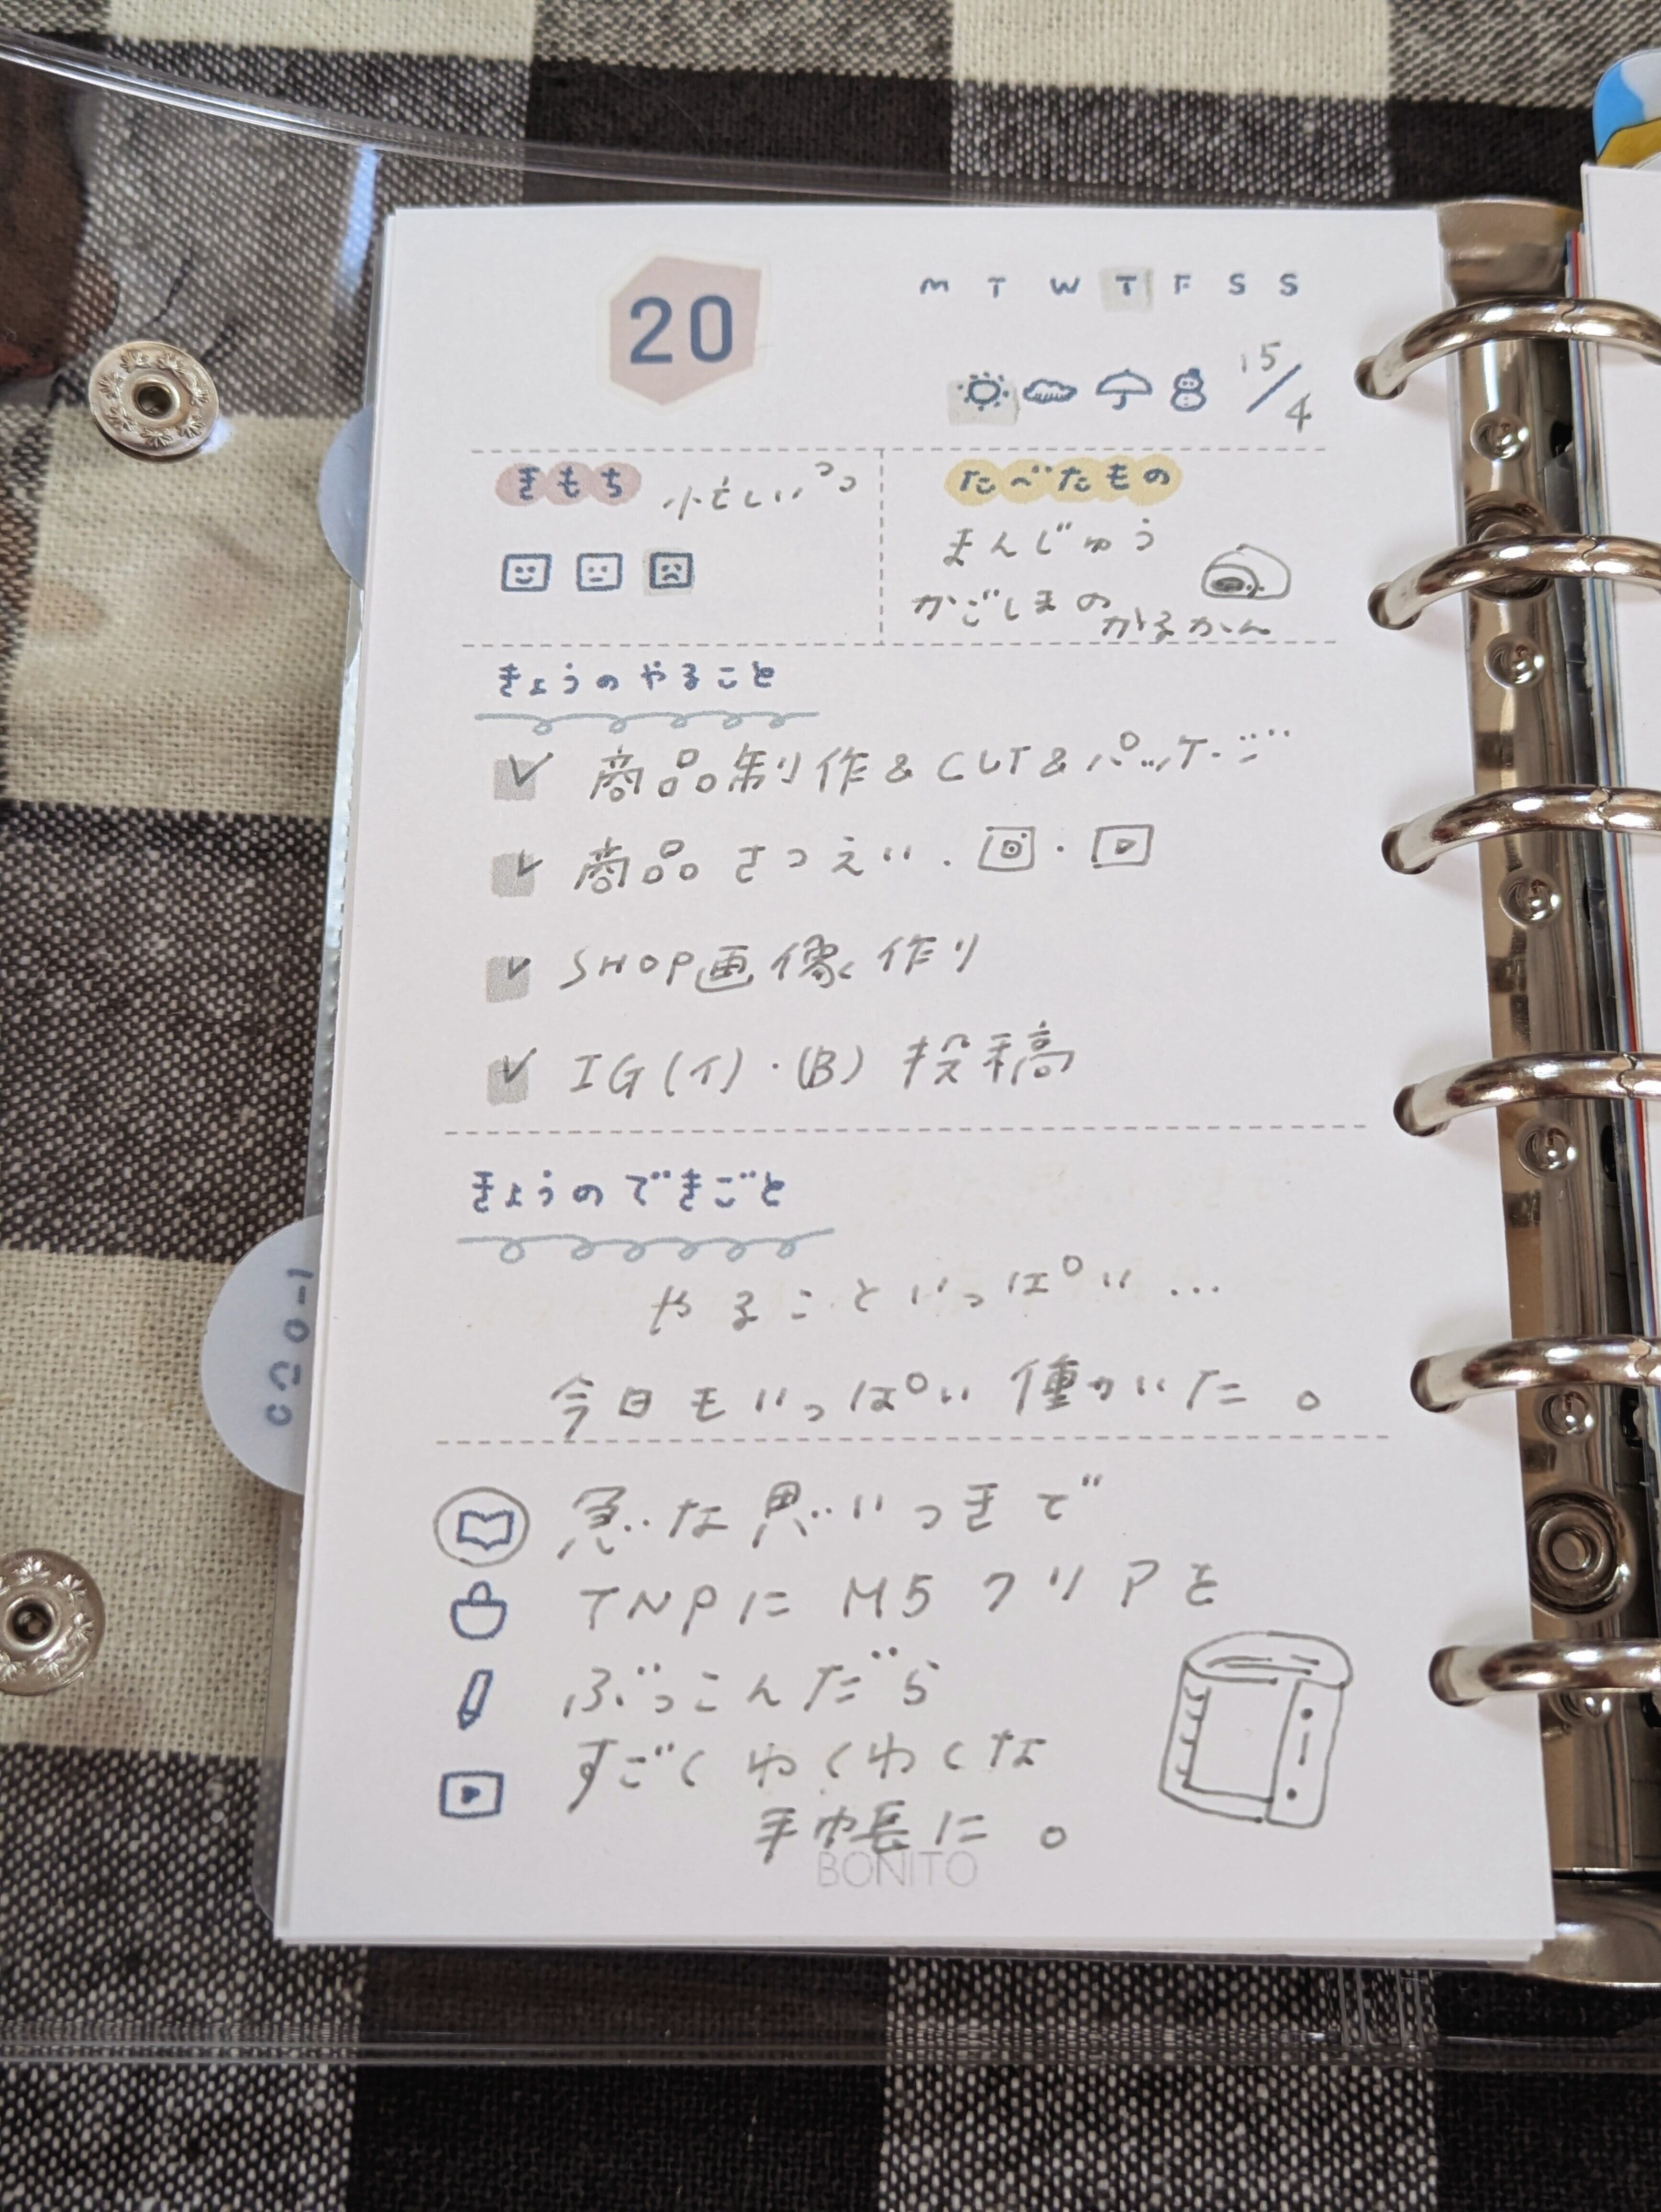 20
M T W T F S S
15/4
きもち 忙しいっっ
たべたもの
まんじゅう
かごしまの
かるかん
きょうのやること
商品制作&CUT&パッケージ
商品さつえい.・
SHOP画像作り
IG(イ)・(B) 投稿
きょうのできごと
やることいっぱい...
今日もいっぱい働かいた。
急な思いつきで
TNPにM5クリアを
ぶっこんだら
すごくわくわくな
手帳に。
BONITO